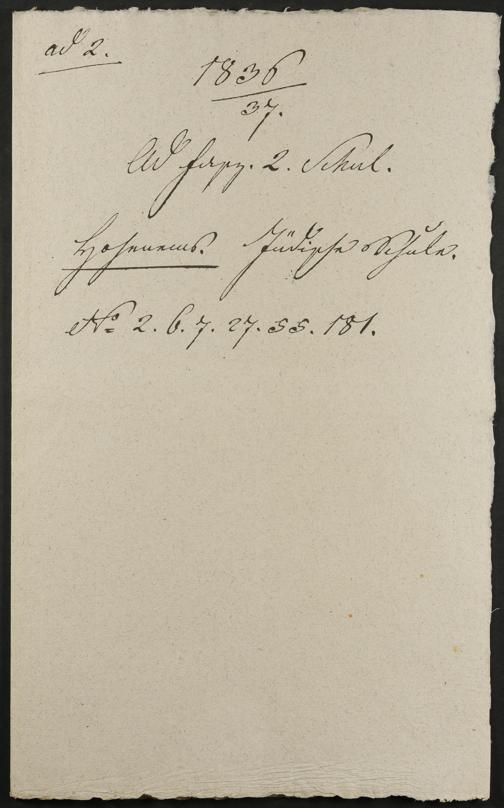 ad 2.
1836
37.
Ad Fasz. 2. Schul.
Hohenems. Jüdische Schule.
No 2. 6. 7. 27. 55. 181.